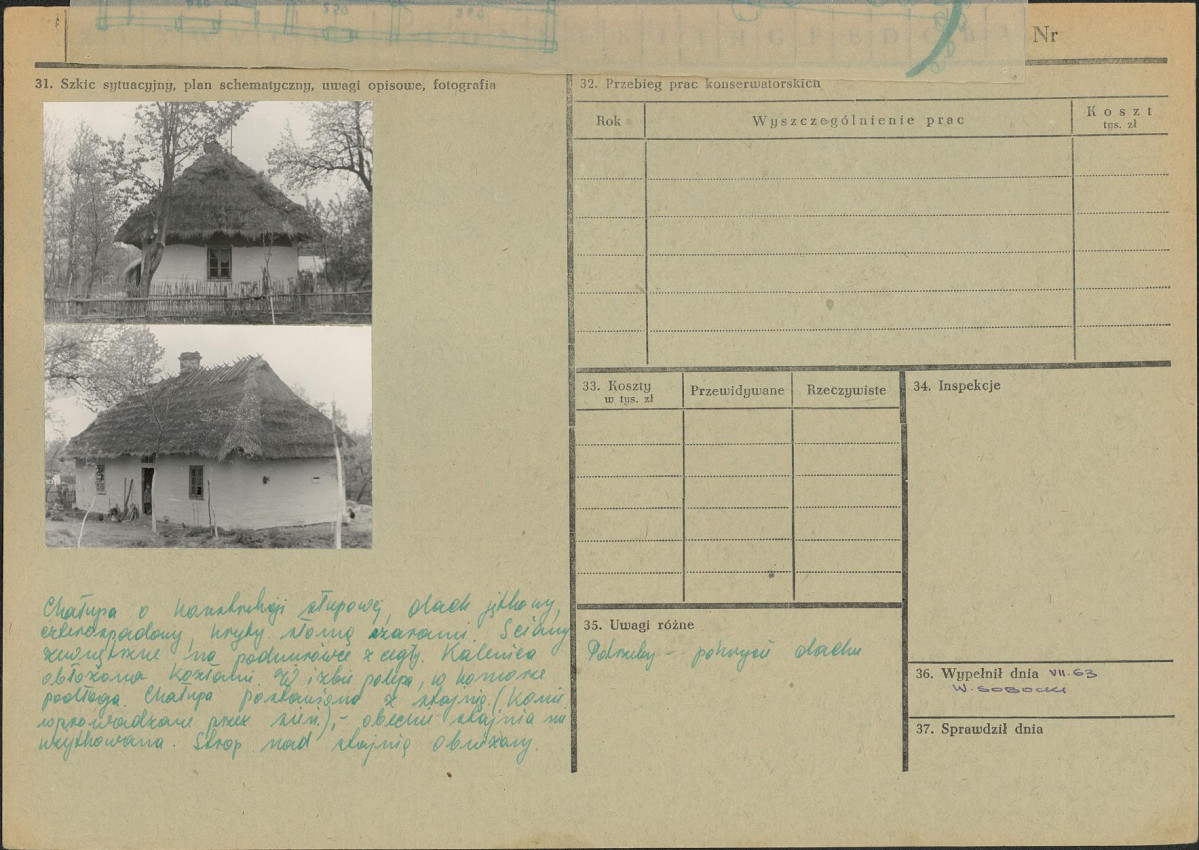 Nr
31. Szkic sytuacyjny, plan schematyczny, uwagi opisowe, fotografia
Chałupa o konstrukcji słupowej, dach
czterospadowy, kryty słomą Ściany
zewnętrzne na podmurówce z cegły. Kalenica
obłożona kozłami. W izbie polepa, w komorze
podłoga. Chałupa z stajnią. (Konie
wprowadzane przez sień.), - obecnie stajnia
Strop nad stajnią obniżony.
32. Przebieg prac konserwatorskich
Rok
Wyszczególnienie prac
Koszt
tys. zł
33. Koszty
w tys. zł
Przewidywane
Rzeczywiste
34. Inspekcje
35. Uwagi różne
Potrzeby - pokrycie dachu
36. Wypełnił dnia VII.63
W. SOBOCKI
37. Sprawdził dnia